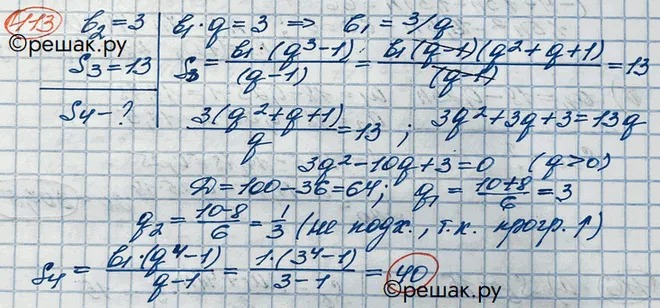 413 b₂=3 b₁·q=3 ⇒ b₁=3/q
©решак.ру
S₃=13 S₃= b₁·(q³-1)/(q-1) = b₁(q-1)(q²+q+1)/(q-1) =13
S₄-? 3(q²+q+1)/q =13; 3q²+3q+3=13q
3q²-10q+3=0 (q>0)
D=100-36=64; q₁= (10+8)/6 =3
q₂= (10-8)/6 = 1/3 (не подх., т.к. прогр.↑)
S₄= b₁·(q⁴-1)/(q-1) = 1·(3⁴-1)/(3-1) = 40
©решак.ру